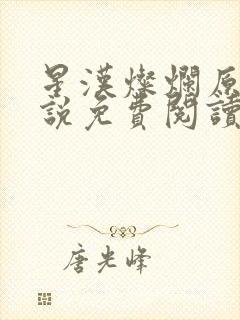 星漢燦爛原
說免費閱讀
唐光峰